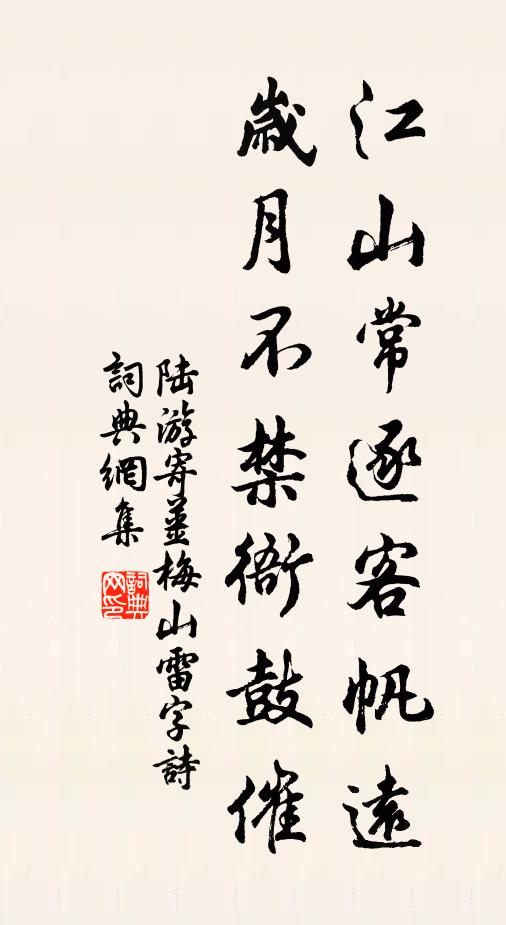 江山常逐客帆遠
歲月不禁衙鼓催
陸游寄姜梅山雷字詩
詞典網集
詞典
网印